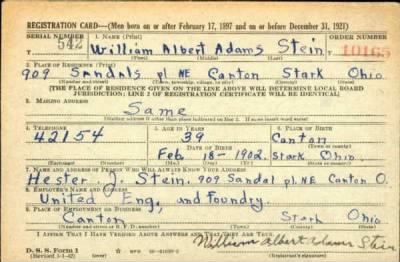 REGISTRATION CARD—(Men born on or after February 17, 1897 and on or before December 31, 1921)
SERIAL NUMBER 1. NAME (Print) ORDER NUMBER
T 542 William Albert Adams Stein T 10165
2. PLACE OF RESIDENCE (Print)
909 Sandals pl NE Canton Stark Ohio
(Number and street) (Town, township, village, or city) (County) (State)
[THE PLACE OF RESIDENCE GIVEN ON THE LINE ABOVE WILL DETERMINE LOCAL BOARD
JURISDICTION; LINE 2 OF REGISTRATION CERTIFICATE WILL BE IDENTICAL]
3. MAILING ADDRESS
Same
[Mailing address if other than place indicated on line 2. If same insert word same]
4. TELEPHONE 5. AGE IN YEARS 6. PLACE OF BIRTH
42154 39 Canton
DATE OF BIRTH (Town or county)
Feb 18-1902. Stark Ohio
(Exchange) (Number) (Mo.) (Day) (Yr.) (State or country)
7. NAME AND ADDRESS OF PERSON WHO WILL ALWAYS KNOW YOUR ADDRESS
Hester J. Stein. 909 Sandal pl. NE Canton O.
8. EMPLOYER'S NAME AND ADDRESS
United Eng. and Foundry.
9. PLACE OF EMPLOYMENT OR BUSINESS
Canton Stark Ohio
(Number and street or R. F. D. number) (Town) (County) (State)
I AFFIRM THAT I HAVE VERIFIED ABOVE ANSWERS AND THAT THEY ARE TRUE.
D. S. S. Form 1
(Revised 1-1-42) (over)
William Albert Adams Stein